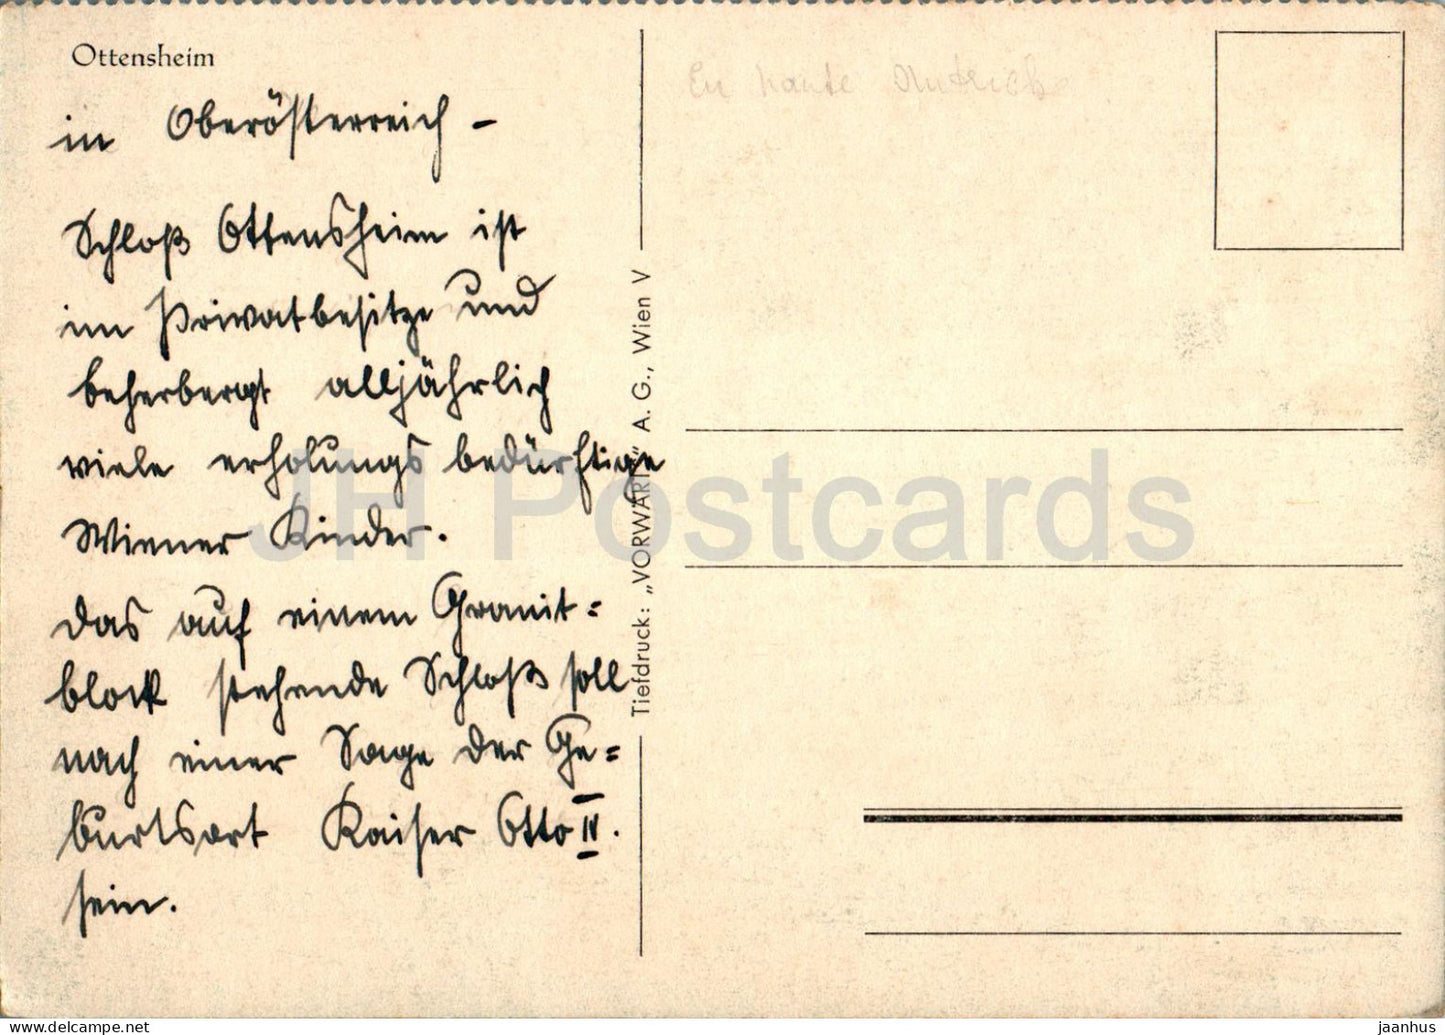 Ottensheim
in Oberösterreich -
Schloß Ottensheim ist
im Privatbesitze und
beherbergt alljährlich
viele erholungsbedürftige
Wiener Kinder.
Das auf einem Granit=
block stehende Schloß soll
nach einer Sage der Ge=
burtsort Kaiser Otto IV.
sein.
Tiefdruck: „VORWÄRTS" A. G., Wien V
En haute
JH Postcards
jaanhus